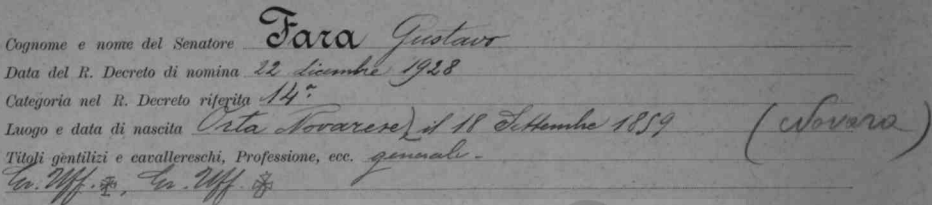 Cognome e nome del Senatore Fara Gustavo
Data del R. Decreto di nomina 22 dicembre 1928
Categoria nel R. Decreto riferita 14ª
Luogo e data di nascita Orta Novarese) il 18 Settembre 1859 (Novara)
Titoli gentilizi e cavallereschi, Professione, ecc. generale -
Gr. Uff. , Gr. Uff.